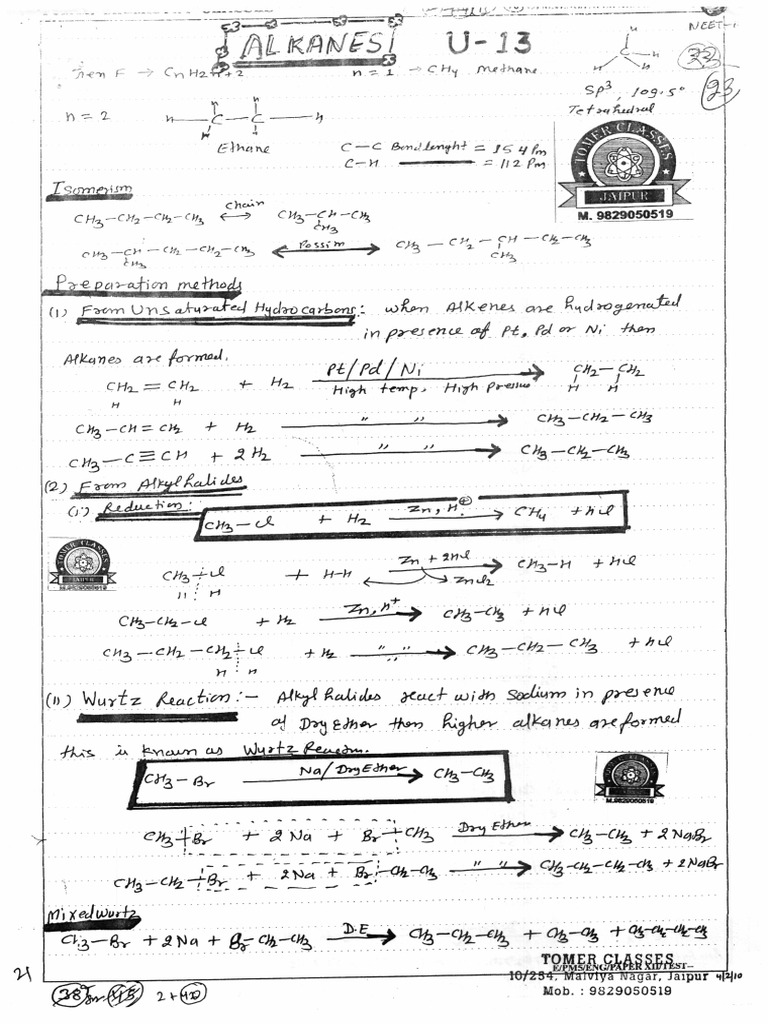 NEET-1
ALKANES U-13
23
Gen F → CnH2n+2 n = 1 → CH4 Methane
SP3, 109.5°
Tetrahedral
H H
n = 2 H—C—C—H
H H
Ethane
C—C Bond lenght = 154 Pm
C—H —— = 112 Pm
TOMER CLASSES
JAIPUR
M. 9829050519
Isomerism
CH3—CH2—CH2—CH3 ↔ Chain CH3—CH—CH3
CH3
CH3—CH—CH2—CH2—CH3 ↔ Possim CH3—CH2—CH—CH2—CH3
CH3 CH3
Preparation methods
(1) From Unsaturated Hydrocarbons:- when Alkenes are hydrogenated
in presence of Pt, Pd or Ni then
Alkanes are formed.
CH2=CH2 + H2 Pt/Pd/Ni → CH2—CH2
H H High temp, High Pressure H H
CH3—CH=CH2 + H2 " " → CH3—CH2—CH3
CH3—C≡CH + 2H2 " " → CH3—CH2—CH3
(2) From Alkylhalides
(i) Reduction:
CH3—Cl + H2 Zn, H+ → CH4 + HCl
TOMER CLASSES
JAIPUR
M.9829050519
CH3—Cl + H-H Zn + 2HCl → CH3—H + HCl
H ZnCl2
CH3—CH2—Cl + H2 Zn, H+ → CH3—CH3 + HCl
CH3—CH2—CH2—Cl + H2 " " → CH3—CH2—CH3 + HCl
H H
(ii) Wurtz Reaction:- Alkyl halides react with Sodium in presence
of Dry Ether then higher alkanes are formed
this is known as Wurtz Reaction.
CH3—Br Na/Dry Ether → CH3—CH3
M.9829050519
CH3—Br + 2Na + Br—CH3 Dry Ether → CH3—CH3 + 2NaBr
CH3—CH2—Br + 2Na + Br—CH2—CH3 " " → CH3—CH2—CH2—CH3 + 2NaBr
Mixed wurtz
CH3—Br + 2Na + Br—CH2—CH3 D.E → CH3—CH2—CH3 + CH3—CH3 + CH3-CH2-CH2-CH3
TOMER CLASSES
E/PM5/ENG/PAPER XII/TEST--
10/254, Malviya Nagar, Jaipur 4/2/10
Mob. : 9829050519
21